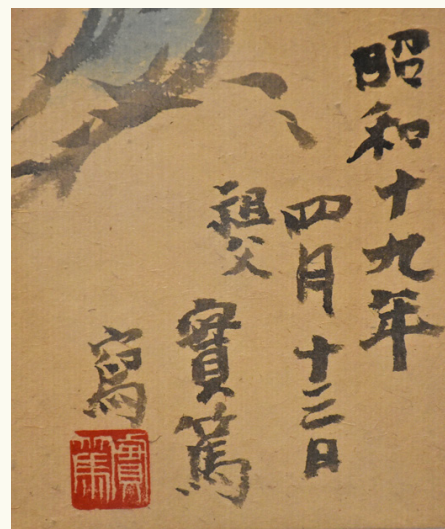 昭和十九年
四月十三日
祖父 實篤
寫
實篤